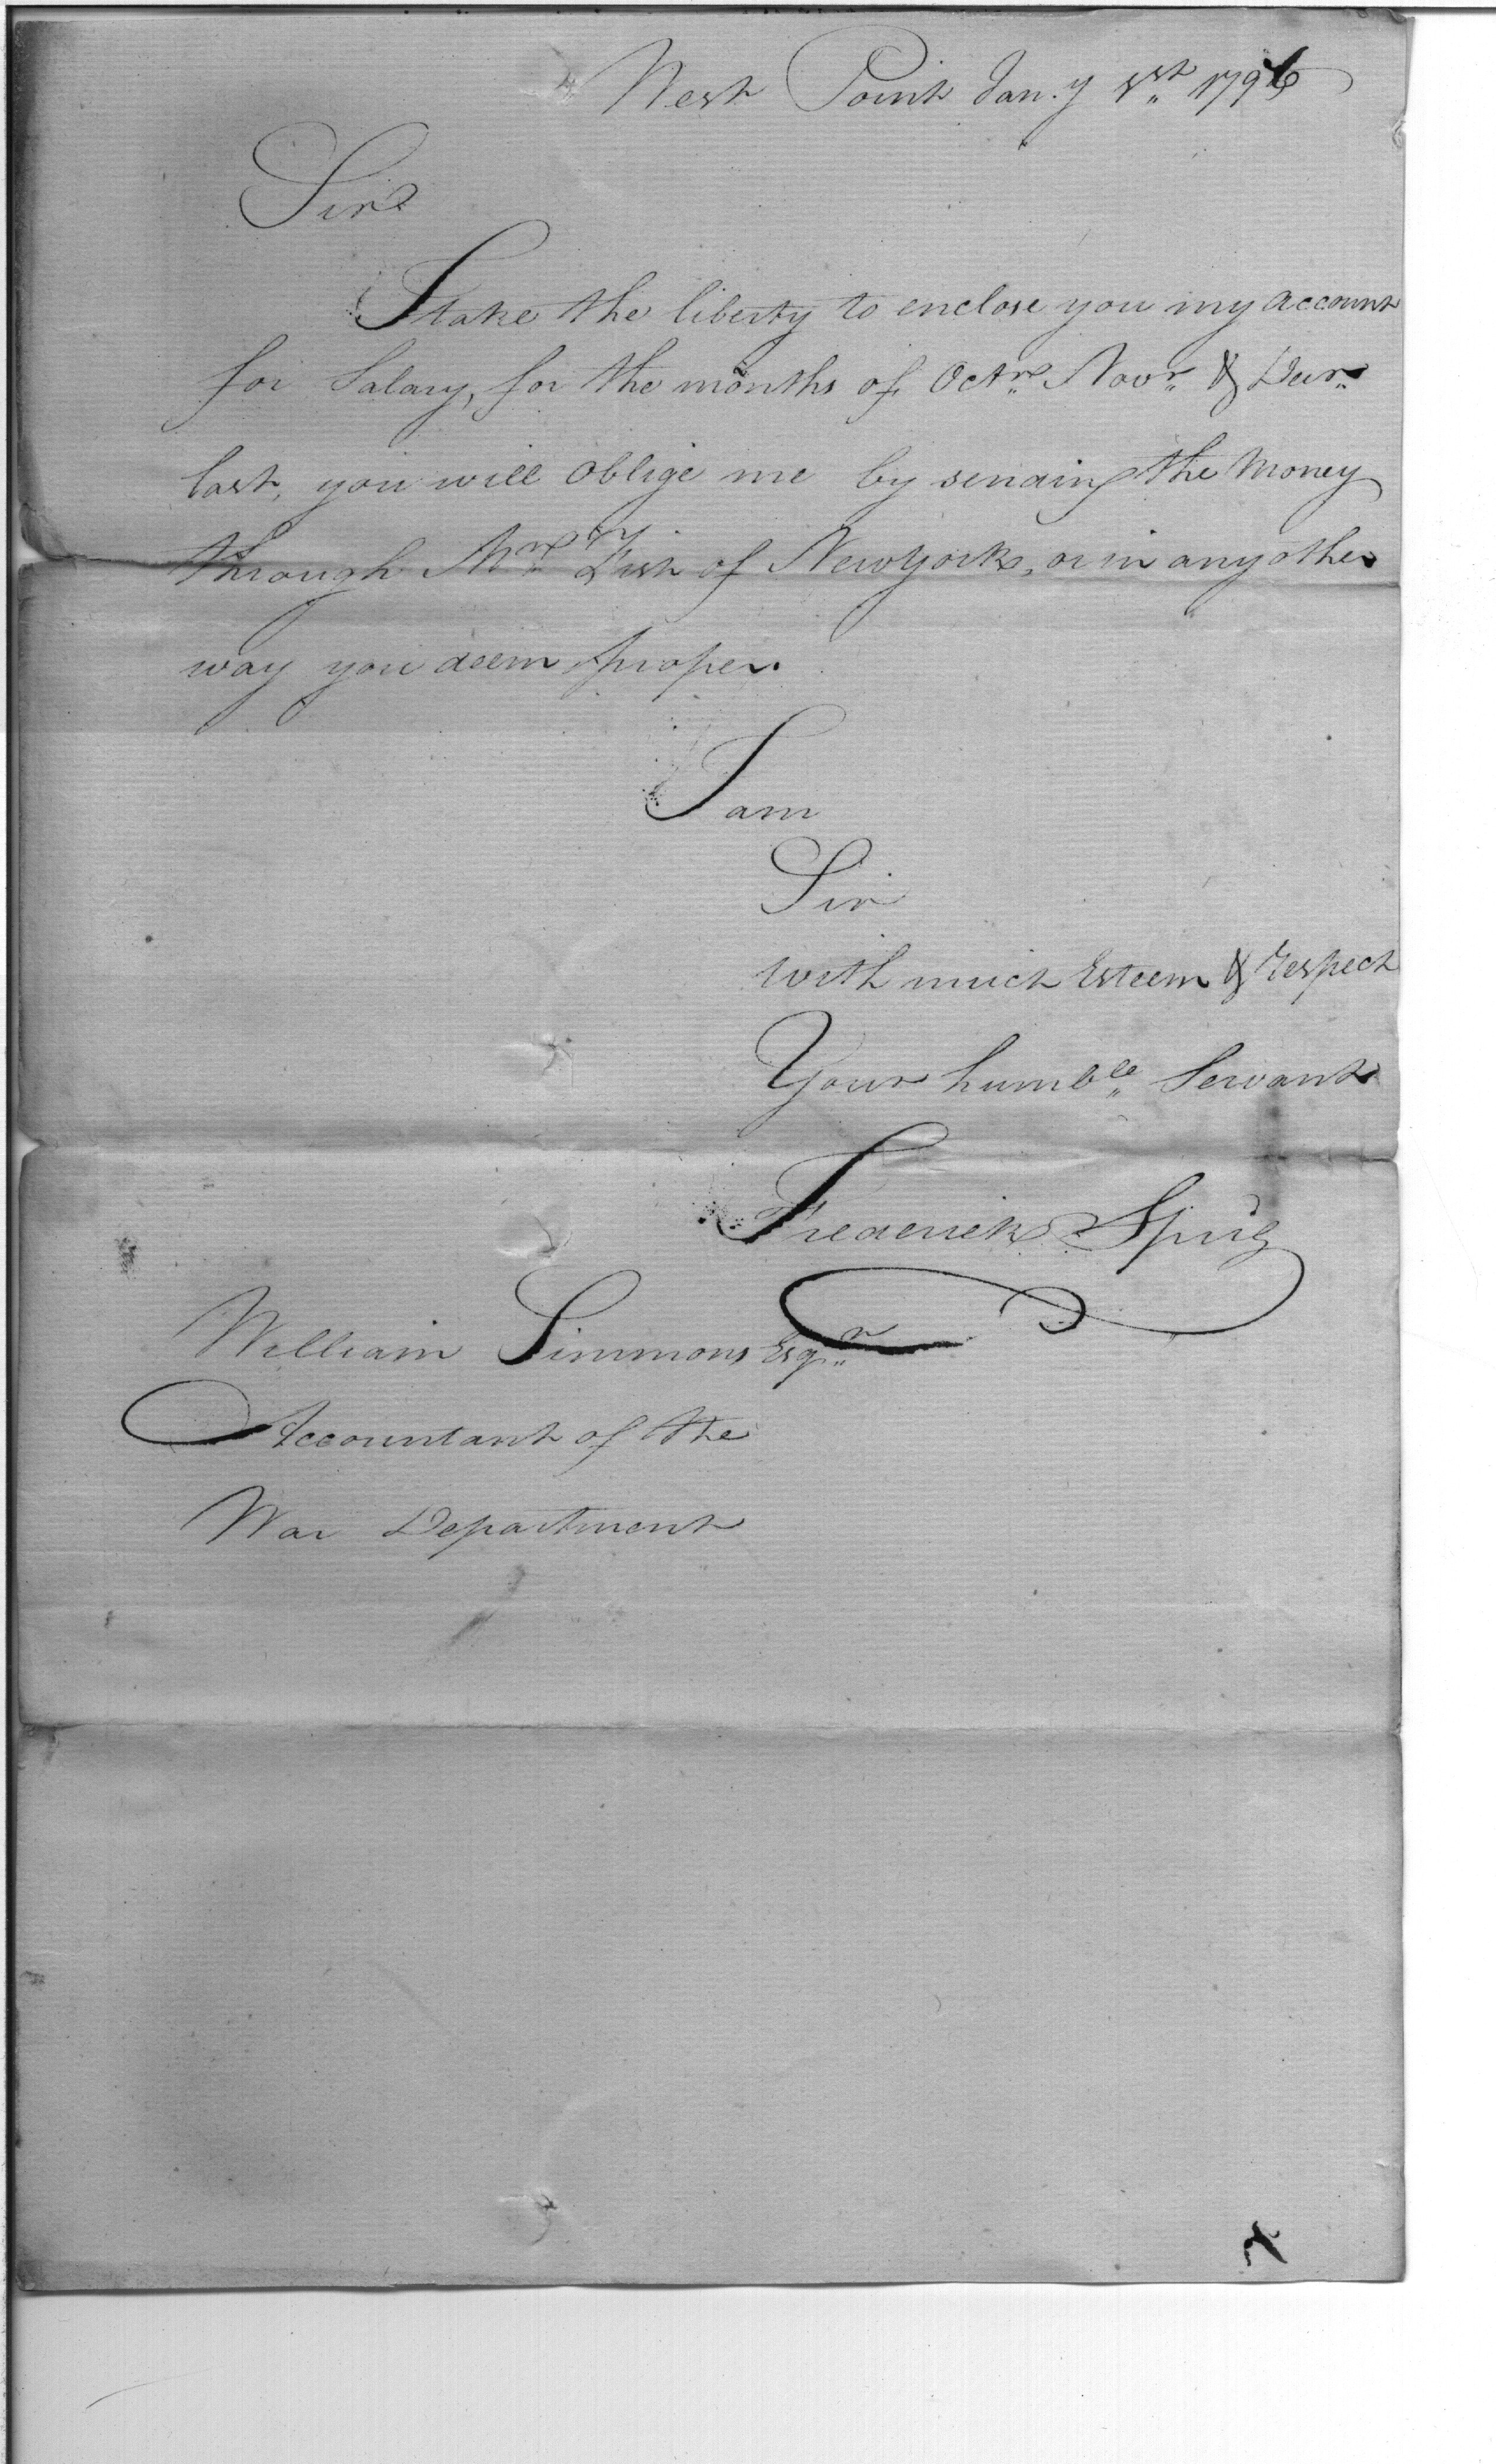 West Point Jan.y 1st 1796
Sir
I take the liberty to enclose you my account
for Salary, for the months of Octr Novr & Decr
last, you will oblige me by sending the money
through Mr Fish of New York, or in any other
way you deem proper.
I am
Sir
with much Esteem & respect
Your humble Servant
Frederick Spirg
William Simmons Esqr
Accountant of the
War Department